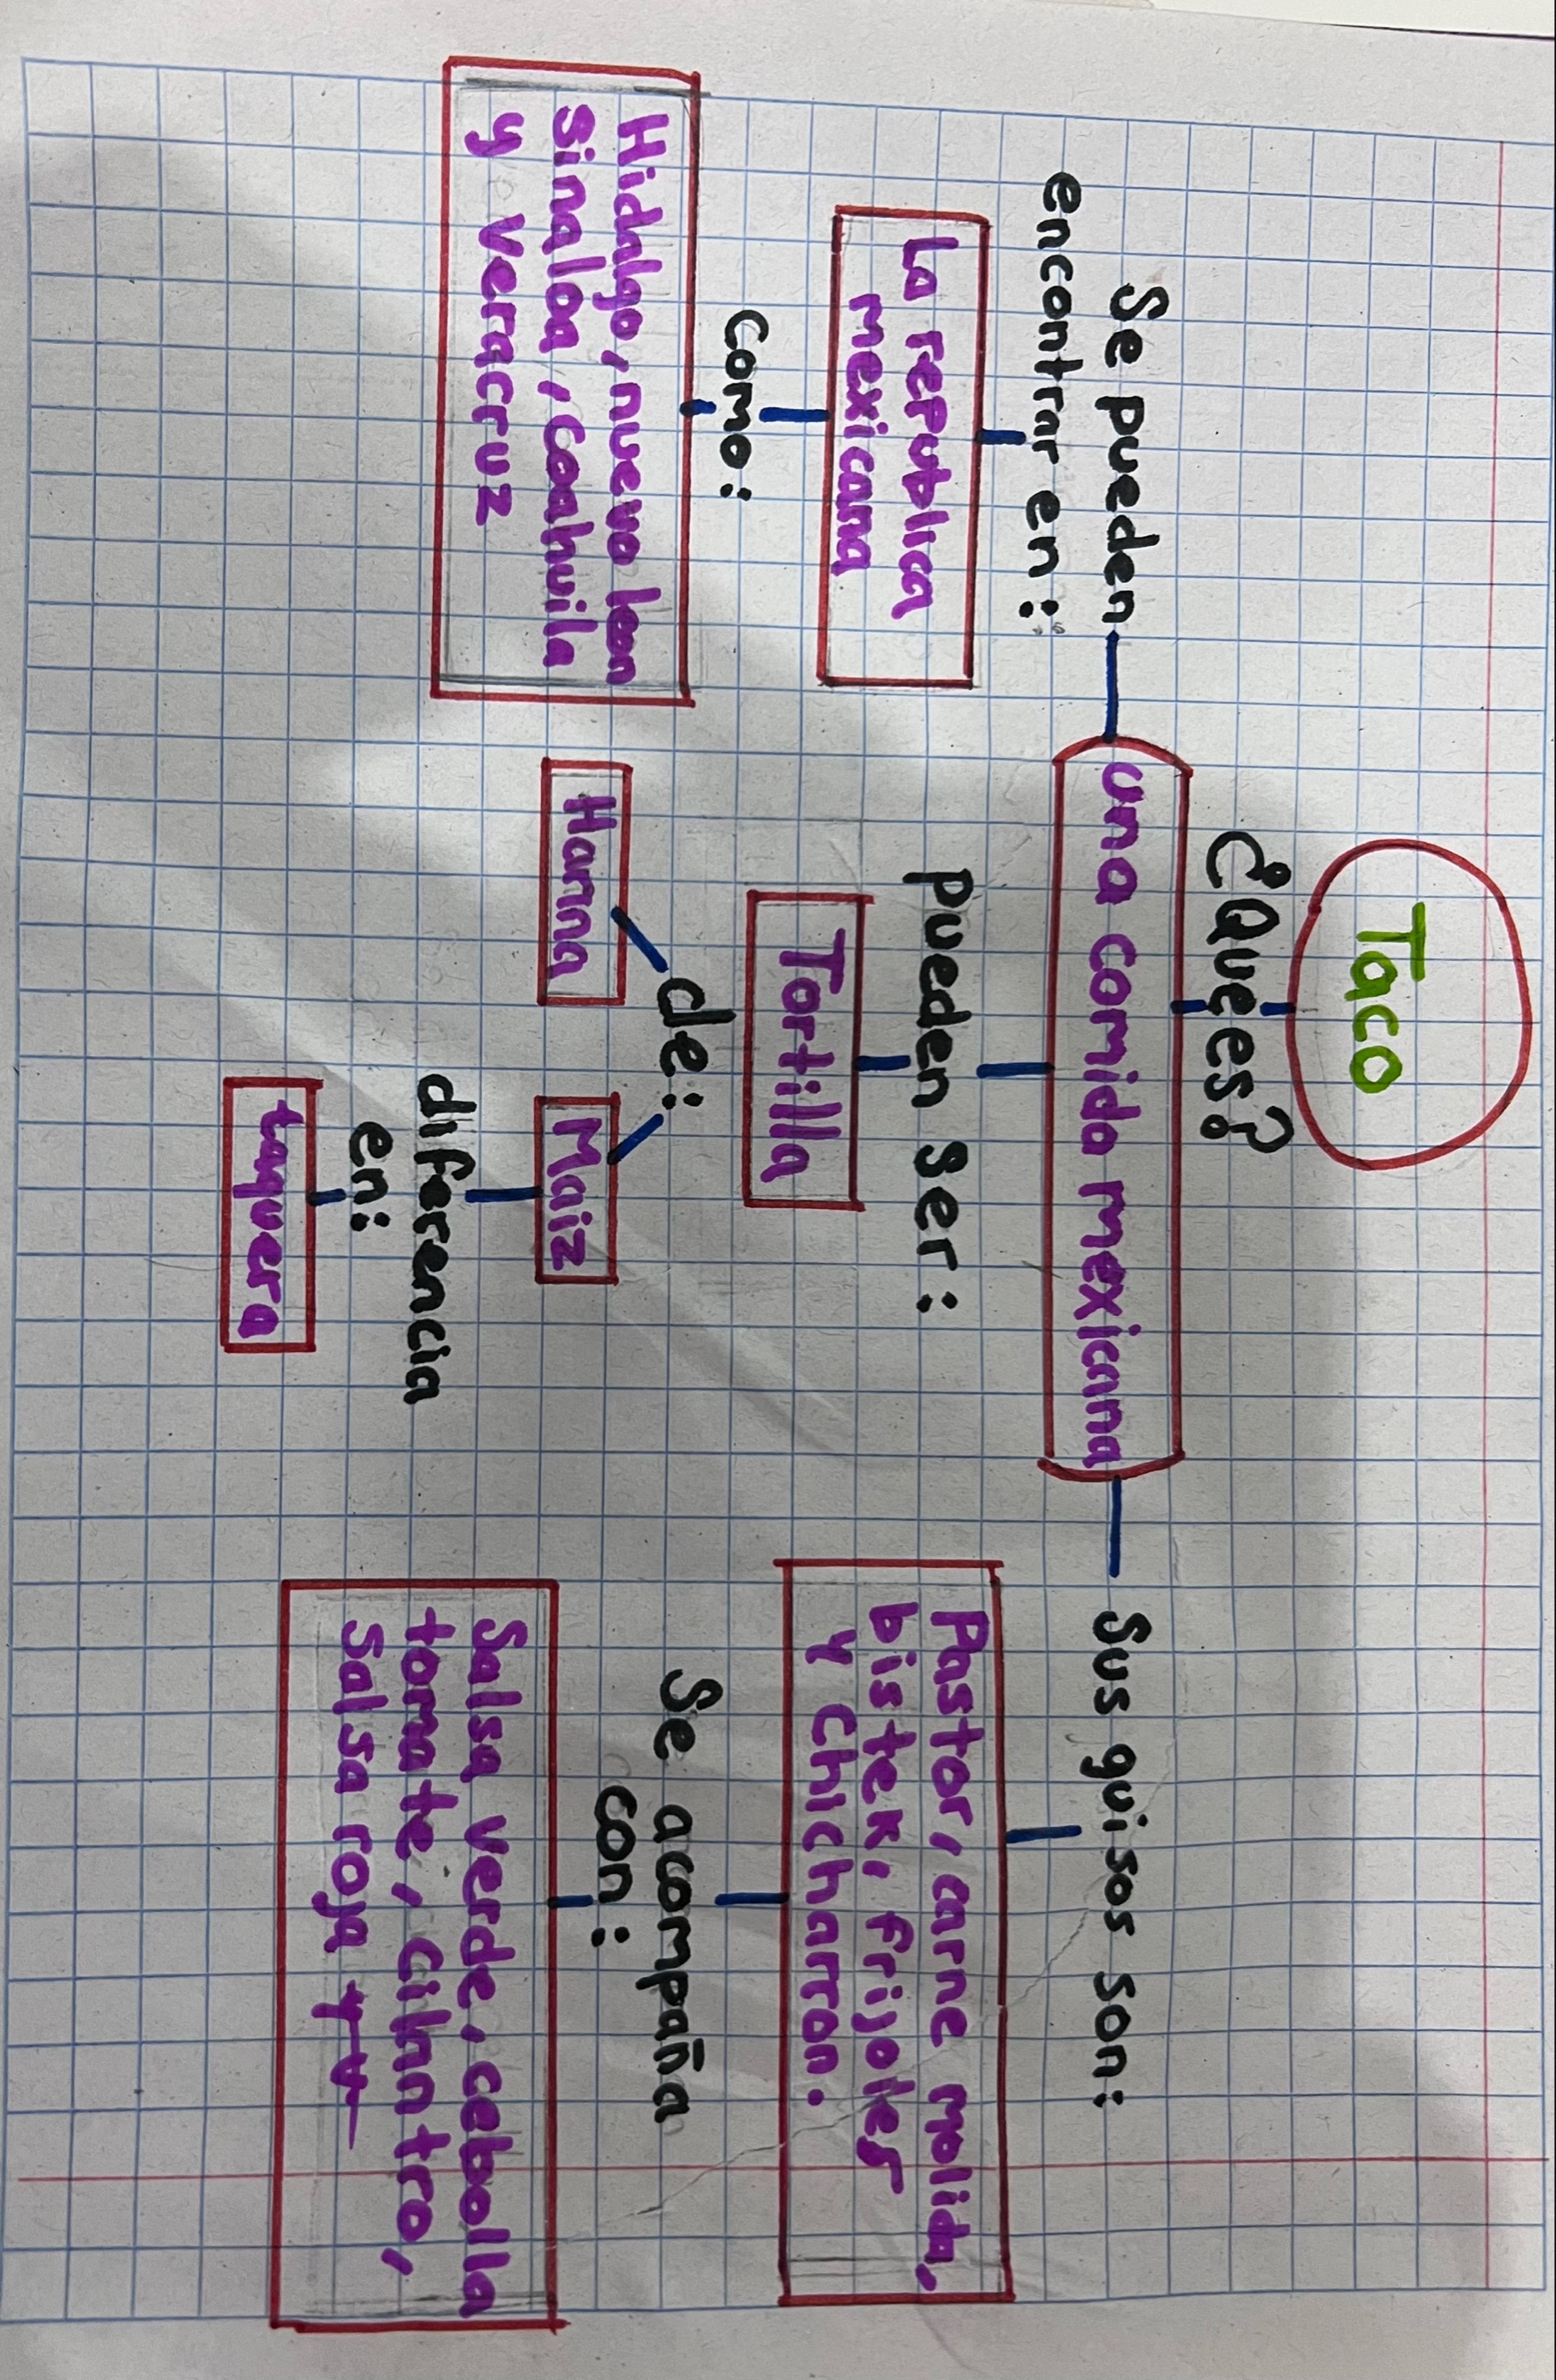 Taco
¿Que es?
una comida mexicana
Se pueden
encontrar en:
La republica
mexicana
Como:
Hidalgo, nuevo leon
sinaloa, coahuila
y Veracruz
pueden ser:
Tortilla
de:
Harina
Maiz
diferencia
en:
taquera
Sus guisos son:
Pastor, carne molida,
bistek, frijoles
y Chicharron.
Se acompaña
con:
Salsa verde, cebolla
tomate, cilantro,
Salsa roja